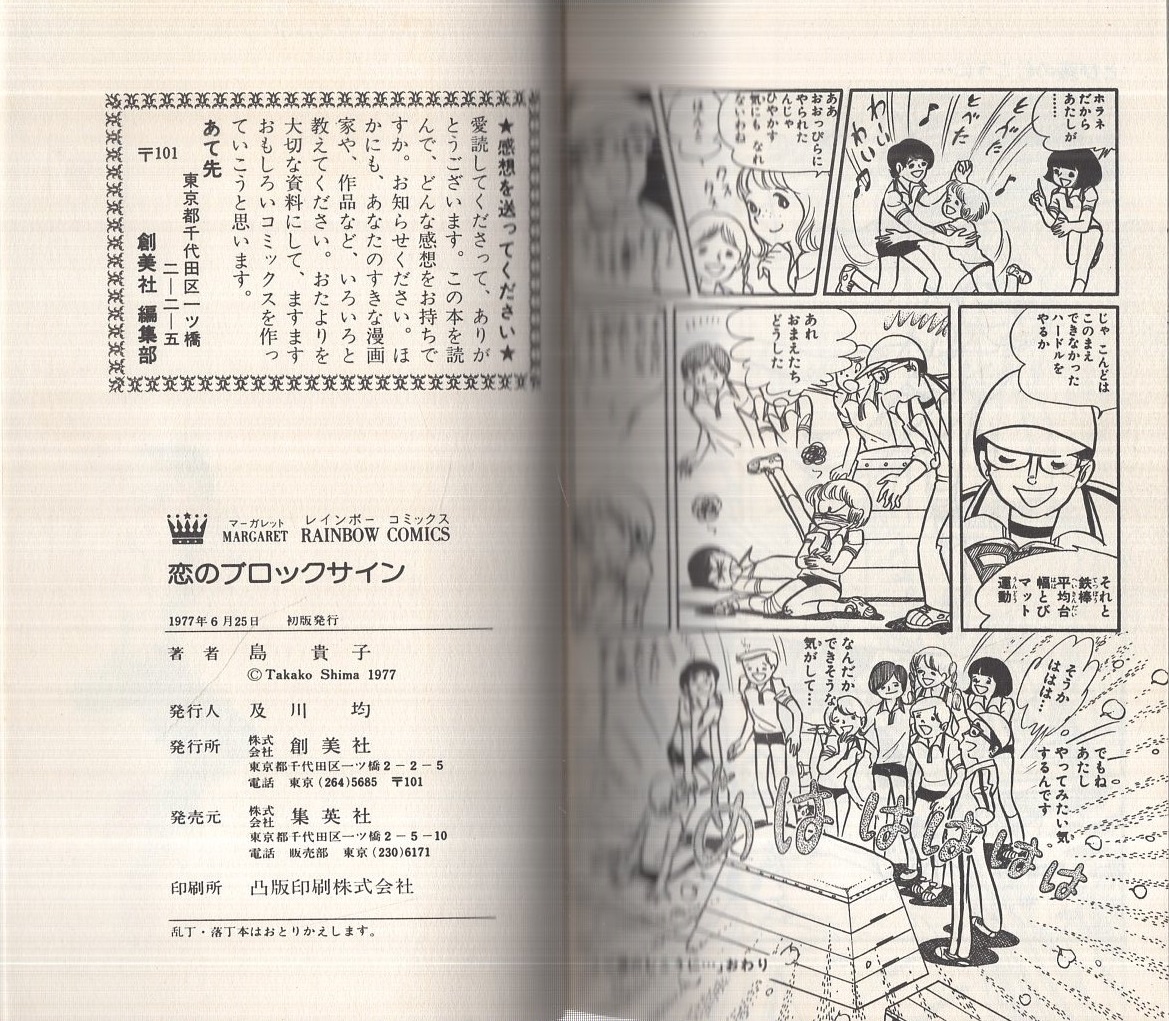 ホラネ
だから
あたしが
……
とべた
とべた
わーい
わーい
ああ
おおっぴらに
やられた
んじゃ
ひやかす
気にも なれ
ないわね
ほんと
クス
クス
じゃ こんどは
このまえ
できなかった
ハードルを
やるか
それと
鉄棒
平均台
幅とび
マット
運動
あれ
おまえたち
どうした
そうか
ははは…
でもね
あたし
やってみたい気
するんです
なんだか
できそうな
気がして…
ははははは
おわり
★感想を送ってください★
愛読してくださって、ありが
とうございます。この本を読
んで、どんな感想をお持ちで
すか。お知らせください。ほ
かにも、あなたのすきな漫画
家や、作品など、いろいろと
教えてください。おたよりを
大切な資料にして、ますます
おもしろいコミックスを作っ
ていこうと思います。
あて先
東京都千代田区一ツ橋
二―二―五
〒101
創美社 編集部
マーガレット レインボー コミックス
MARGARET RAINBOW COMICS
恋のブロックサイン
1977年6月25日 初版発行
著者 島貴子
©Takako Shima 1977
発行人 及川均
発行所 株式会社 創美社
東京都千代田区一ツ橋2-2-5
電話 東京(264)5685 〒101
発売元 株式会社 集英社
東京都千代田区一ツ橋2-5-10
電話 販売部 東京(230)6171
印刷所 凸版印刷株式会社
乱丁・落丁本はおとりかえします。